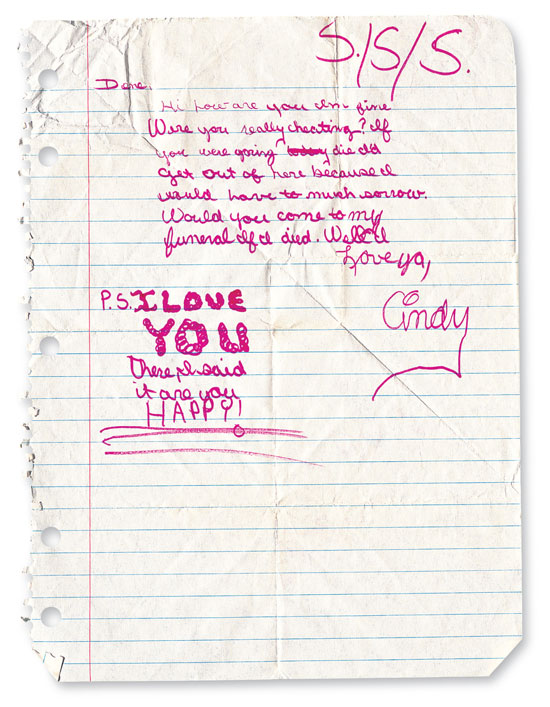 S./S/S.
Hi how are you Im fine
Were you really cheating? If
you were going die Id
get out of here because I
would have to much sorrow.
Would you come to my
funeral If I died. Well I
Love ya,
Cindy
P.S. I LOVE
YOU
There I said
it are you
HAPPY!